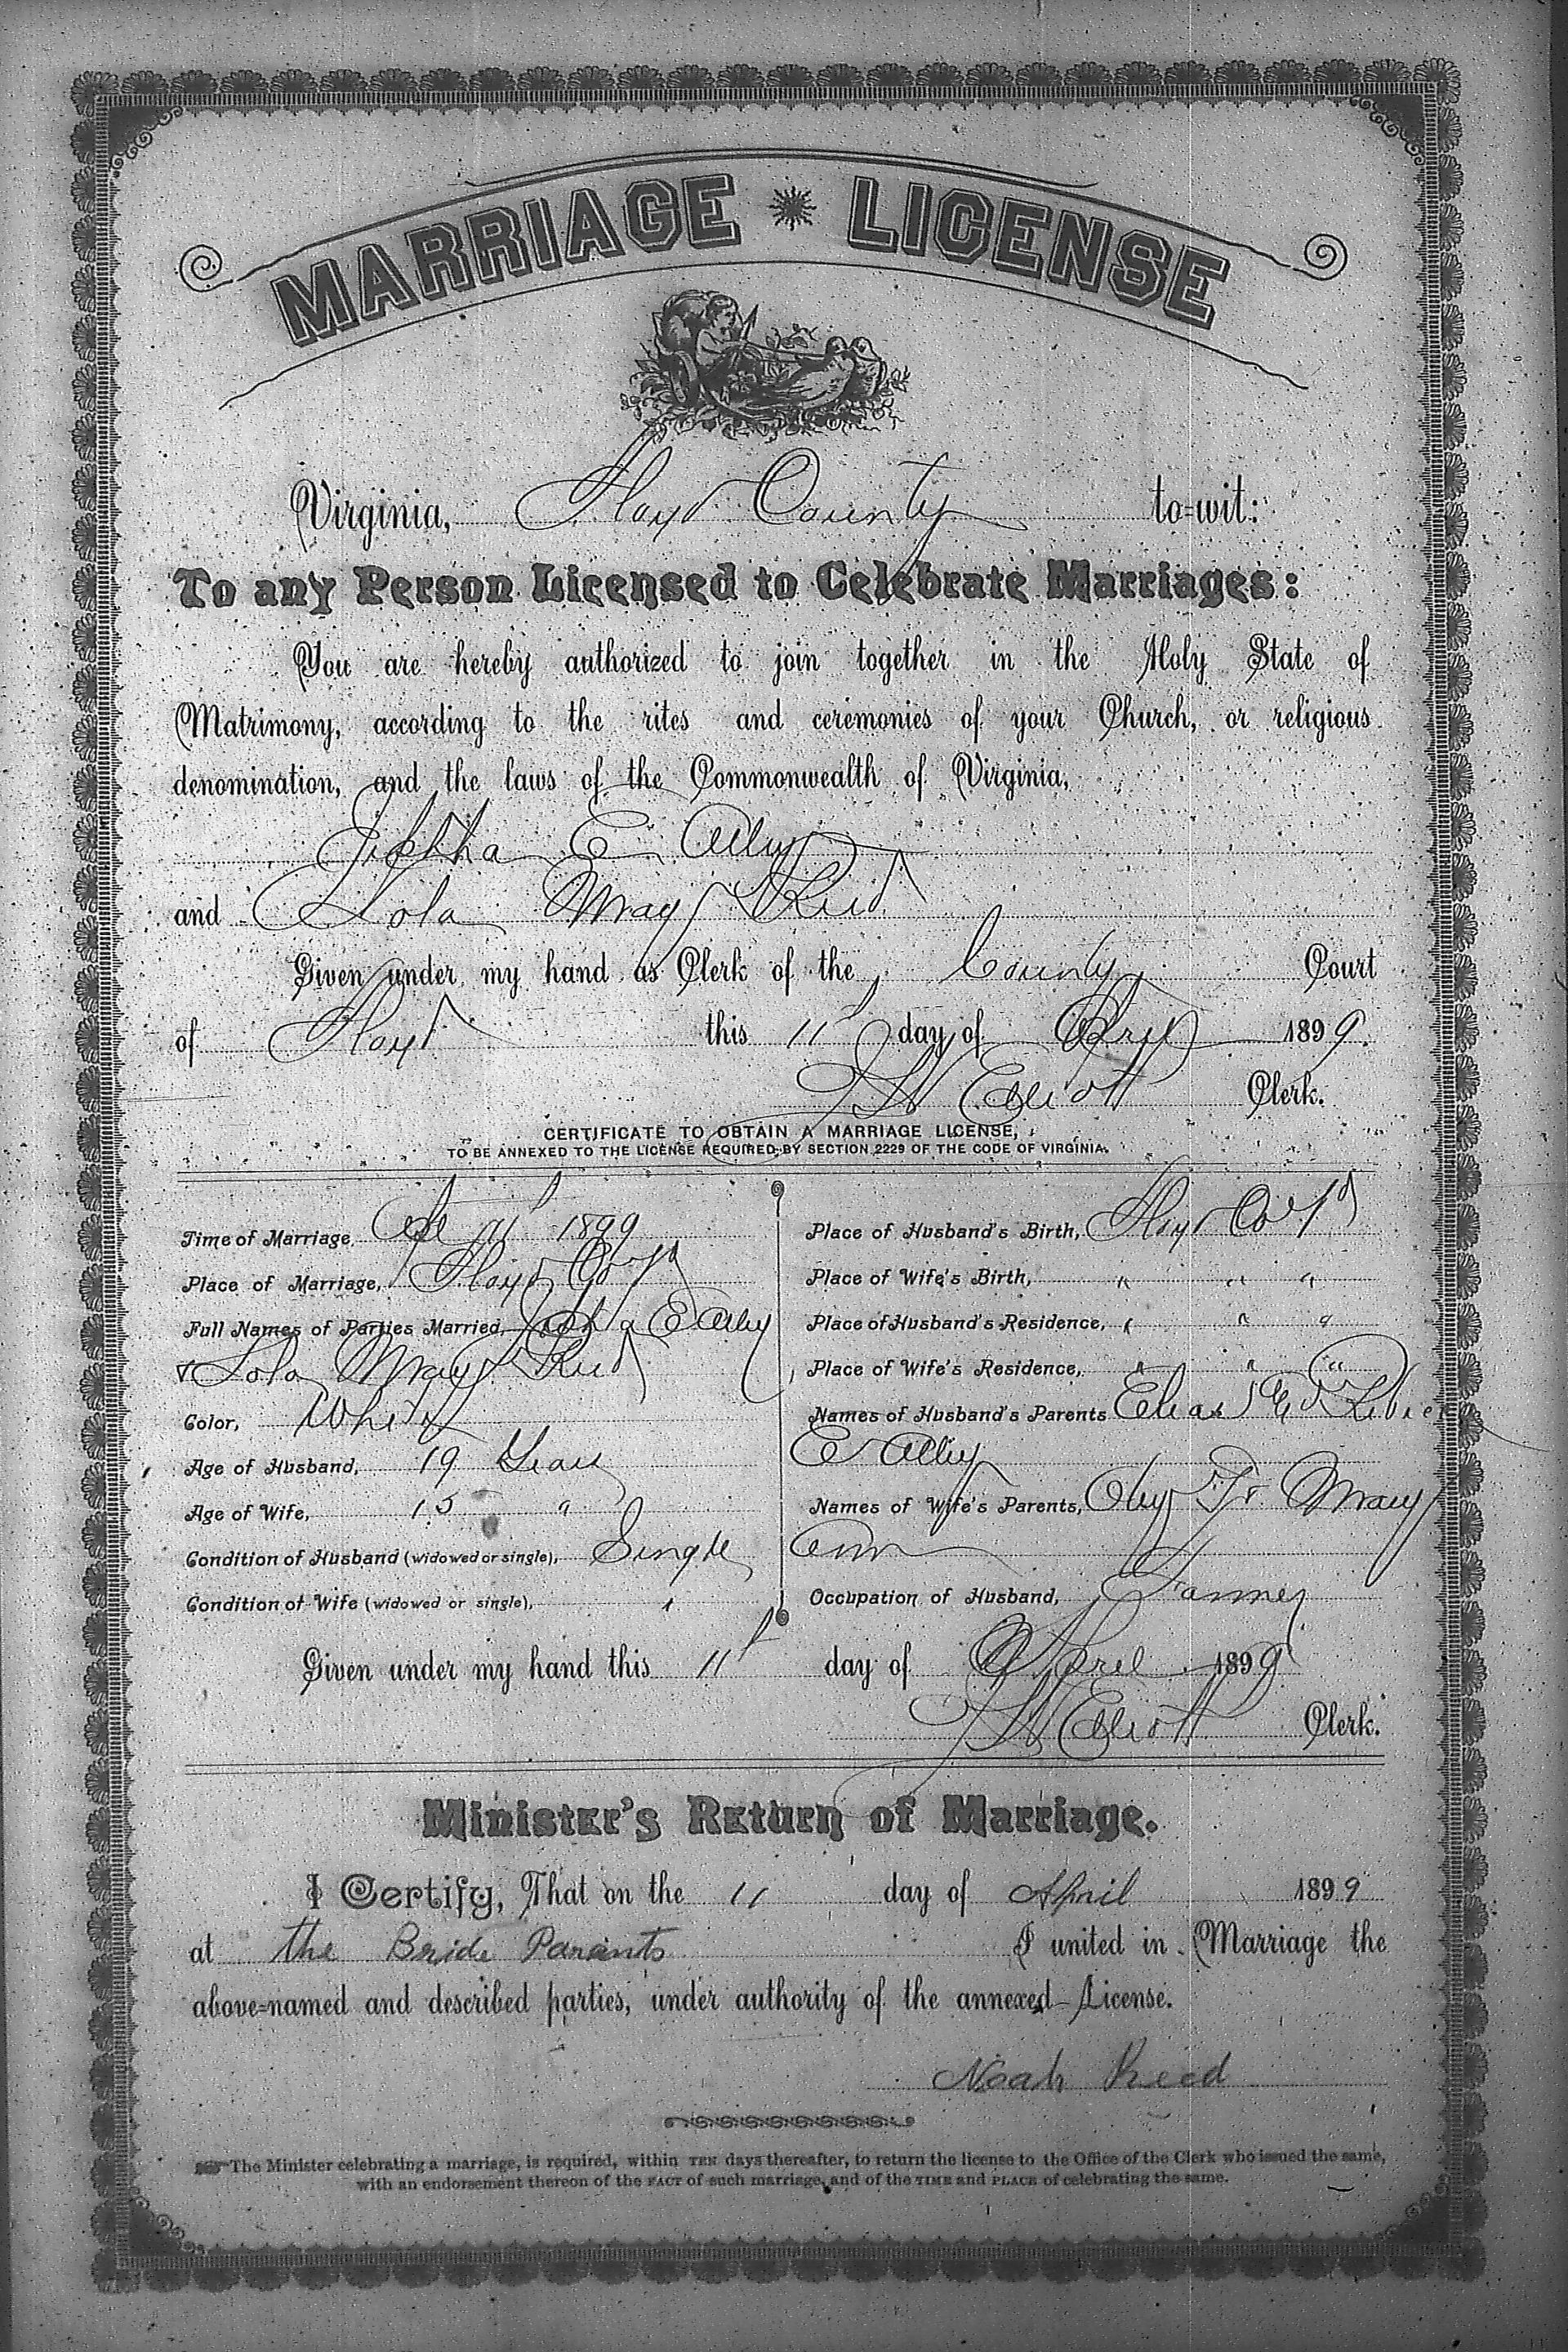 MARRIAGE LICENSE
Virginia, Floyd County to-wit:
To any Person Licensed to Celebrate Marriages:
You are hereby authorized to join together in the Holy State of
Matrimony, according to the rites and ceremonies of your Church, or religious
denomination, and the laws of the Commonwealth of Virginia,
Jeptha E
and Lola May Reed
Given under my hand as Clerk of the County Court
of Floyd this 11 day of April 1899.
Elliott Clerk.
CERTIFICATE TO OBTAIN A MARRIAGE LICENSE,
TO BE ANNEXED TO THE LICENSE REQUIRED BY SECTION 2229 OF THE CODE OF VIRGINIA.
Time of Marriage, Apl 11 1899
Place of Marriage, Floyd Co Va
Full Names of Parties Married, Jeptha E
& Lola May Reed
Color, White
Age of Husband, 19 Years
Age of Wife, 15 "
Condition of Husband (widowed or single), Single
Condition of Wife (widowed or single), "
Place of Husband's Birth, Floyd Co Va
Place of Wife's Birth, " " "
Place of Husband's Residence, " " "
Place of Wife's Residence, " " "
Names of Husband's Parents
E
Names of Wife's Parents, Mary
Ann
Occupation of Husband, Farmer
Given under my hand this 11 day of April 1899
Elliott Clerk.
Minister's Return of Marriage.
I Certify, That on the 11 day of April 1899
at the Bride Parants I united in Marriage the
above=named and described parties, under authority of the annexed License.
Noah Reed
The Minister celebrating a marriage, is required, within TEN days thereafter, to return the license to the Office of the Clerk who issued the same,
with an endorsement thereon of the FACT of such marriage, and of the TIME and PLACE of celebrating the same.